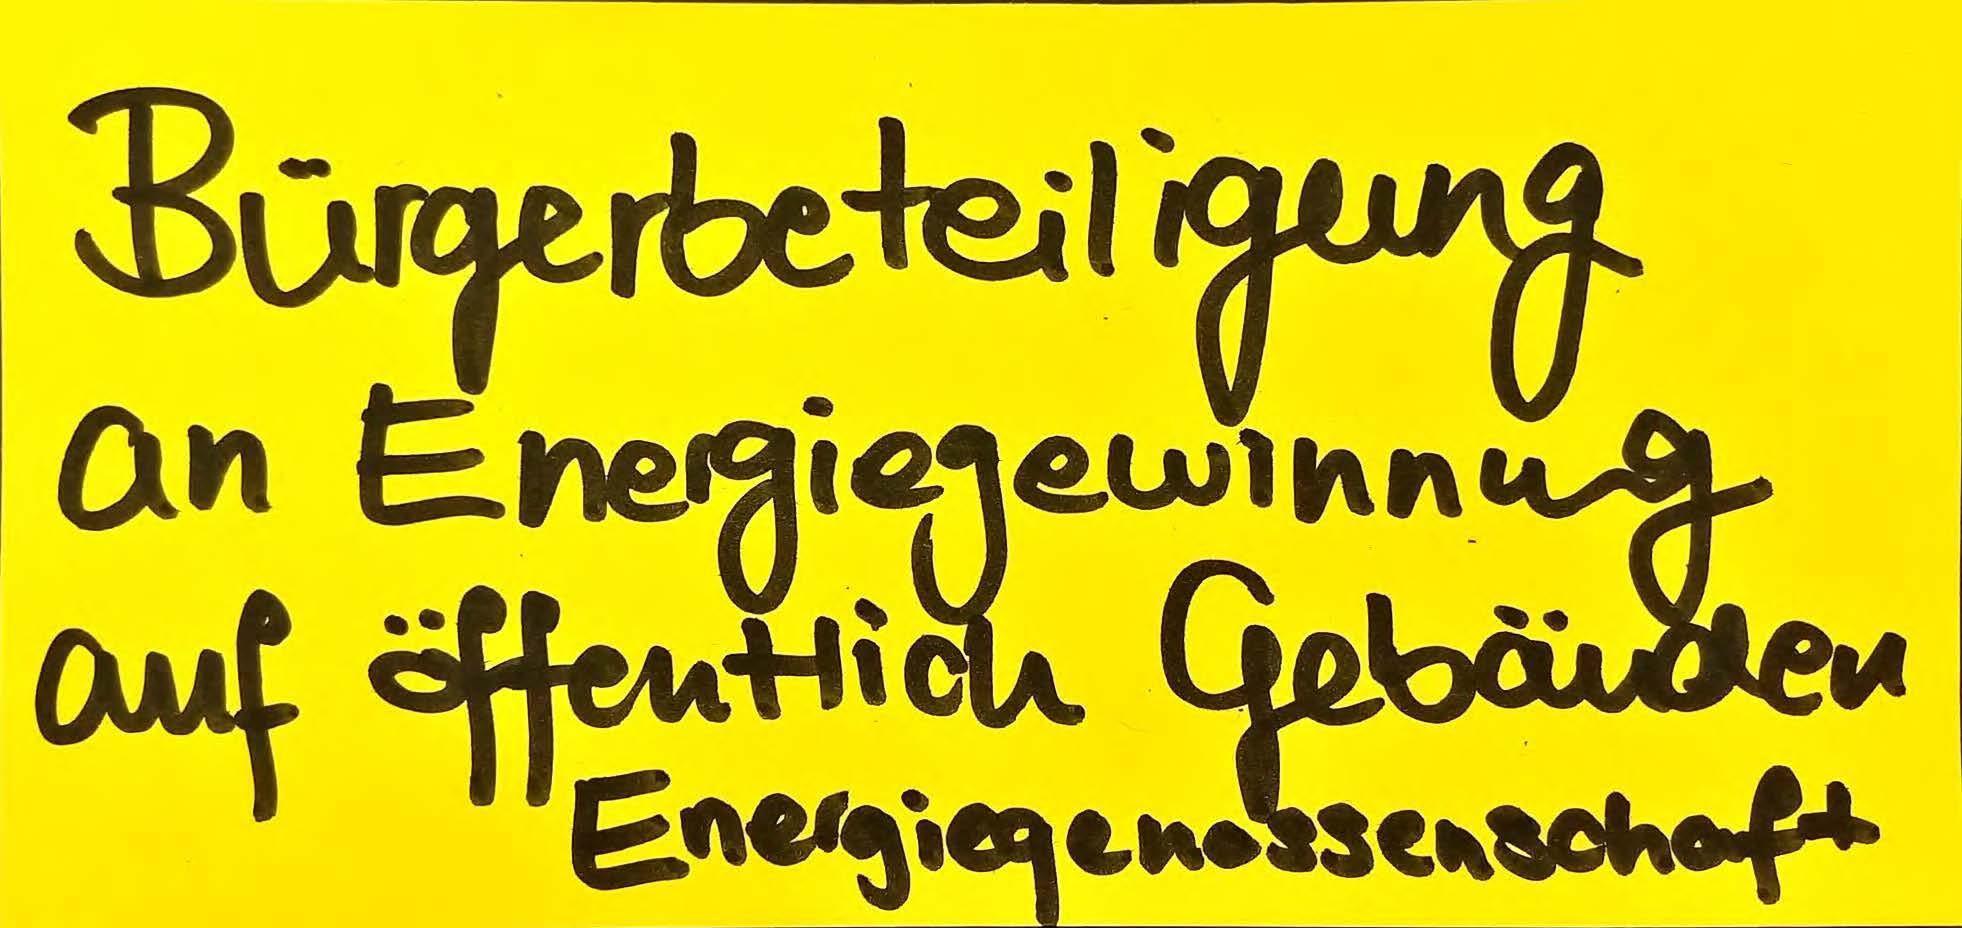 Bürgerbeteiligung
an Energiegewinnug
auf öffentlich Gebäuden
Energiegenossenschaft